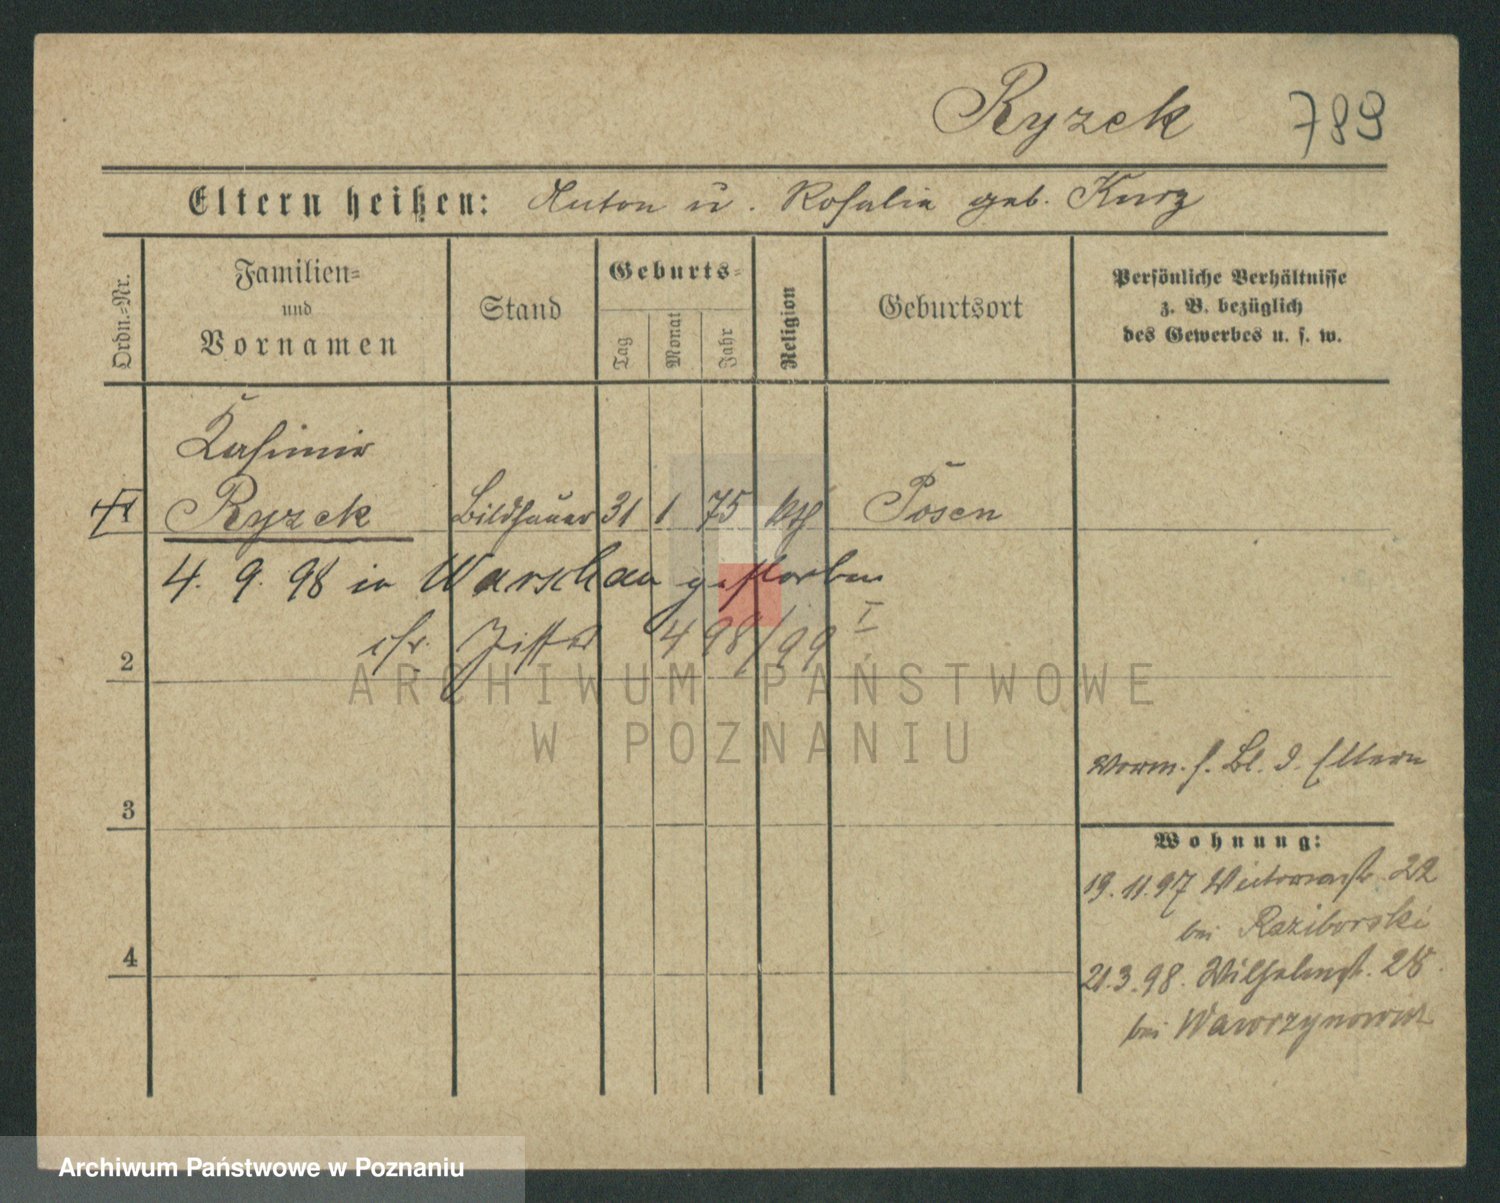 Ryzek 789
Eltern heißen: Anton u. Rosalie geb. Kurz
Ordn.-Nr.
Familien-
und
Vornamen
Stand
Geburts-
Tag
Monat
Jahr
Religion
Geburtsort
Persönliche Verhältnisse
z. B. bezüglich
des Gewerbes u. s. w.
Kasimir
1 Ryzek Bildhauer 31 1 75 kth Posen
4. 9. 98 in Warschau gestorben
cfr. 4 98/99 I
2
ARCHIWUM PAŃSTWOWE
W POZNANIU
Vorm. s. Bl. d. Eltern
3
Wohnung:
19.11.97 Victoriastr. 22
bei Raziborski
4
21.3.98. Wilhelmstr. 28.
bei Wawrzynowicz
Archiwum Państwowe w Poznaniu